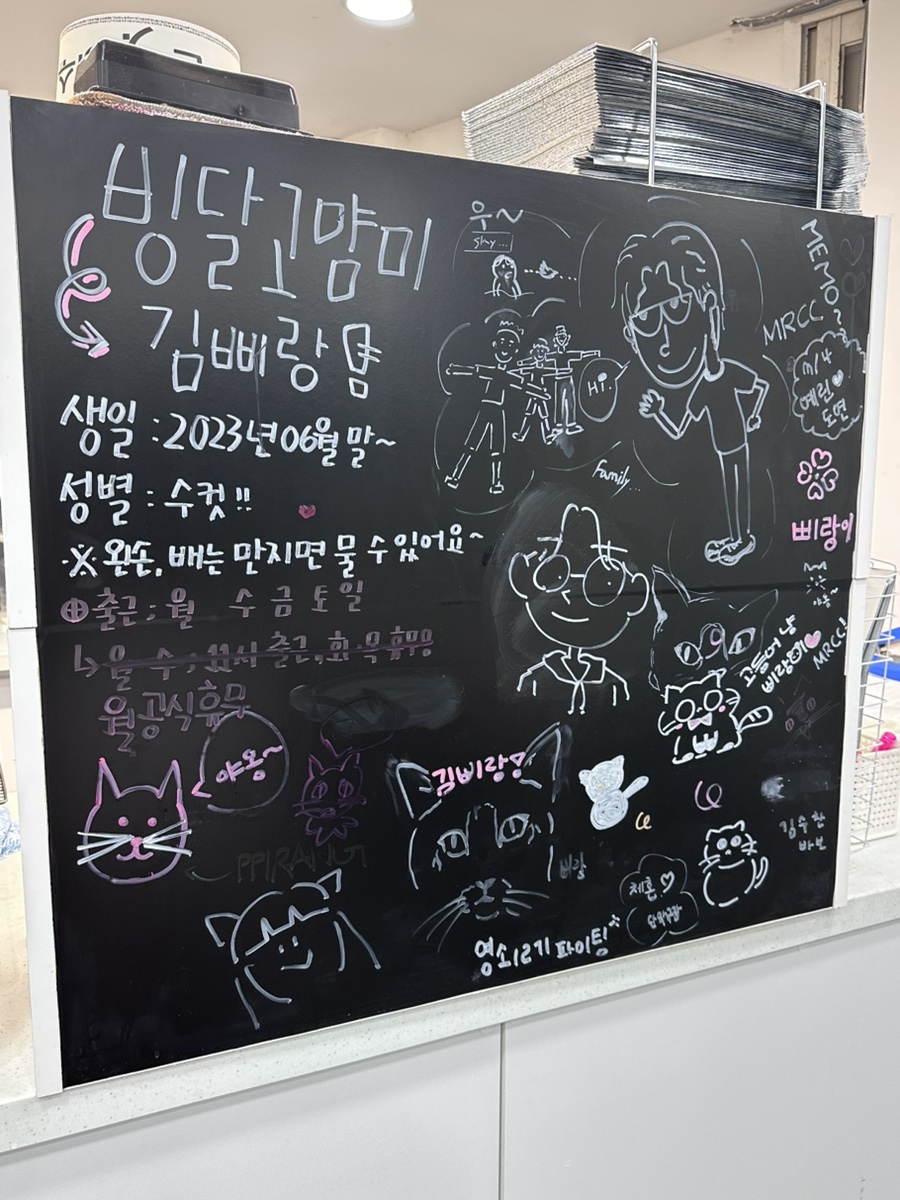 빙달고먐미
김삐랑
생일 : 2023년 06월 말~
성별 : 수컷!!
※ 왼손, 배는 만지면 물 수 있어요~
출근 : 월 수 금 토 일
↳ 월 수 : 11시 출근, 화·목 휴무
월 공식휴무
야옹~
PPIRANG
우~
shy...
HI.
Family..
MEMO?
MRCC
m/4
예린♥
도연
삐랑이
야옹~
고등어냥
삐랑이♥
MRCC!
김삐랑
삐랑
김수찬
바보
제혼♡
영소12기 파이팅